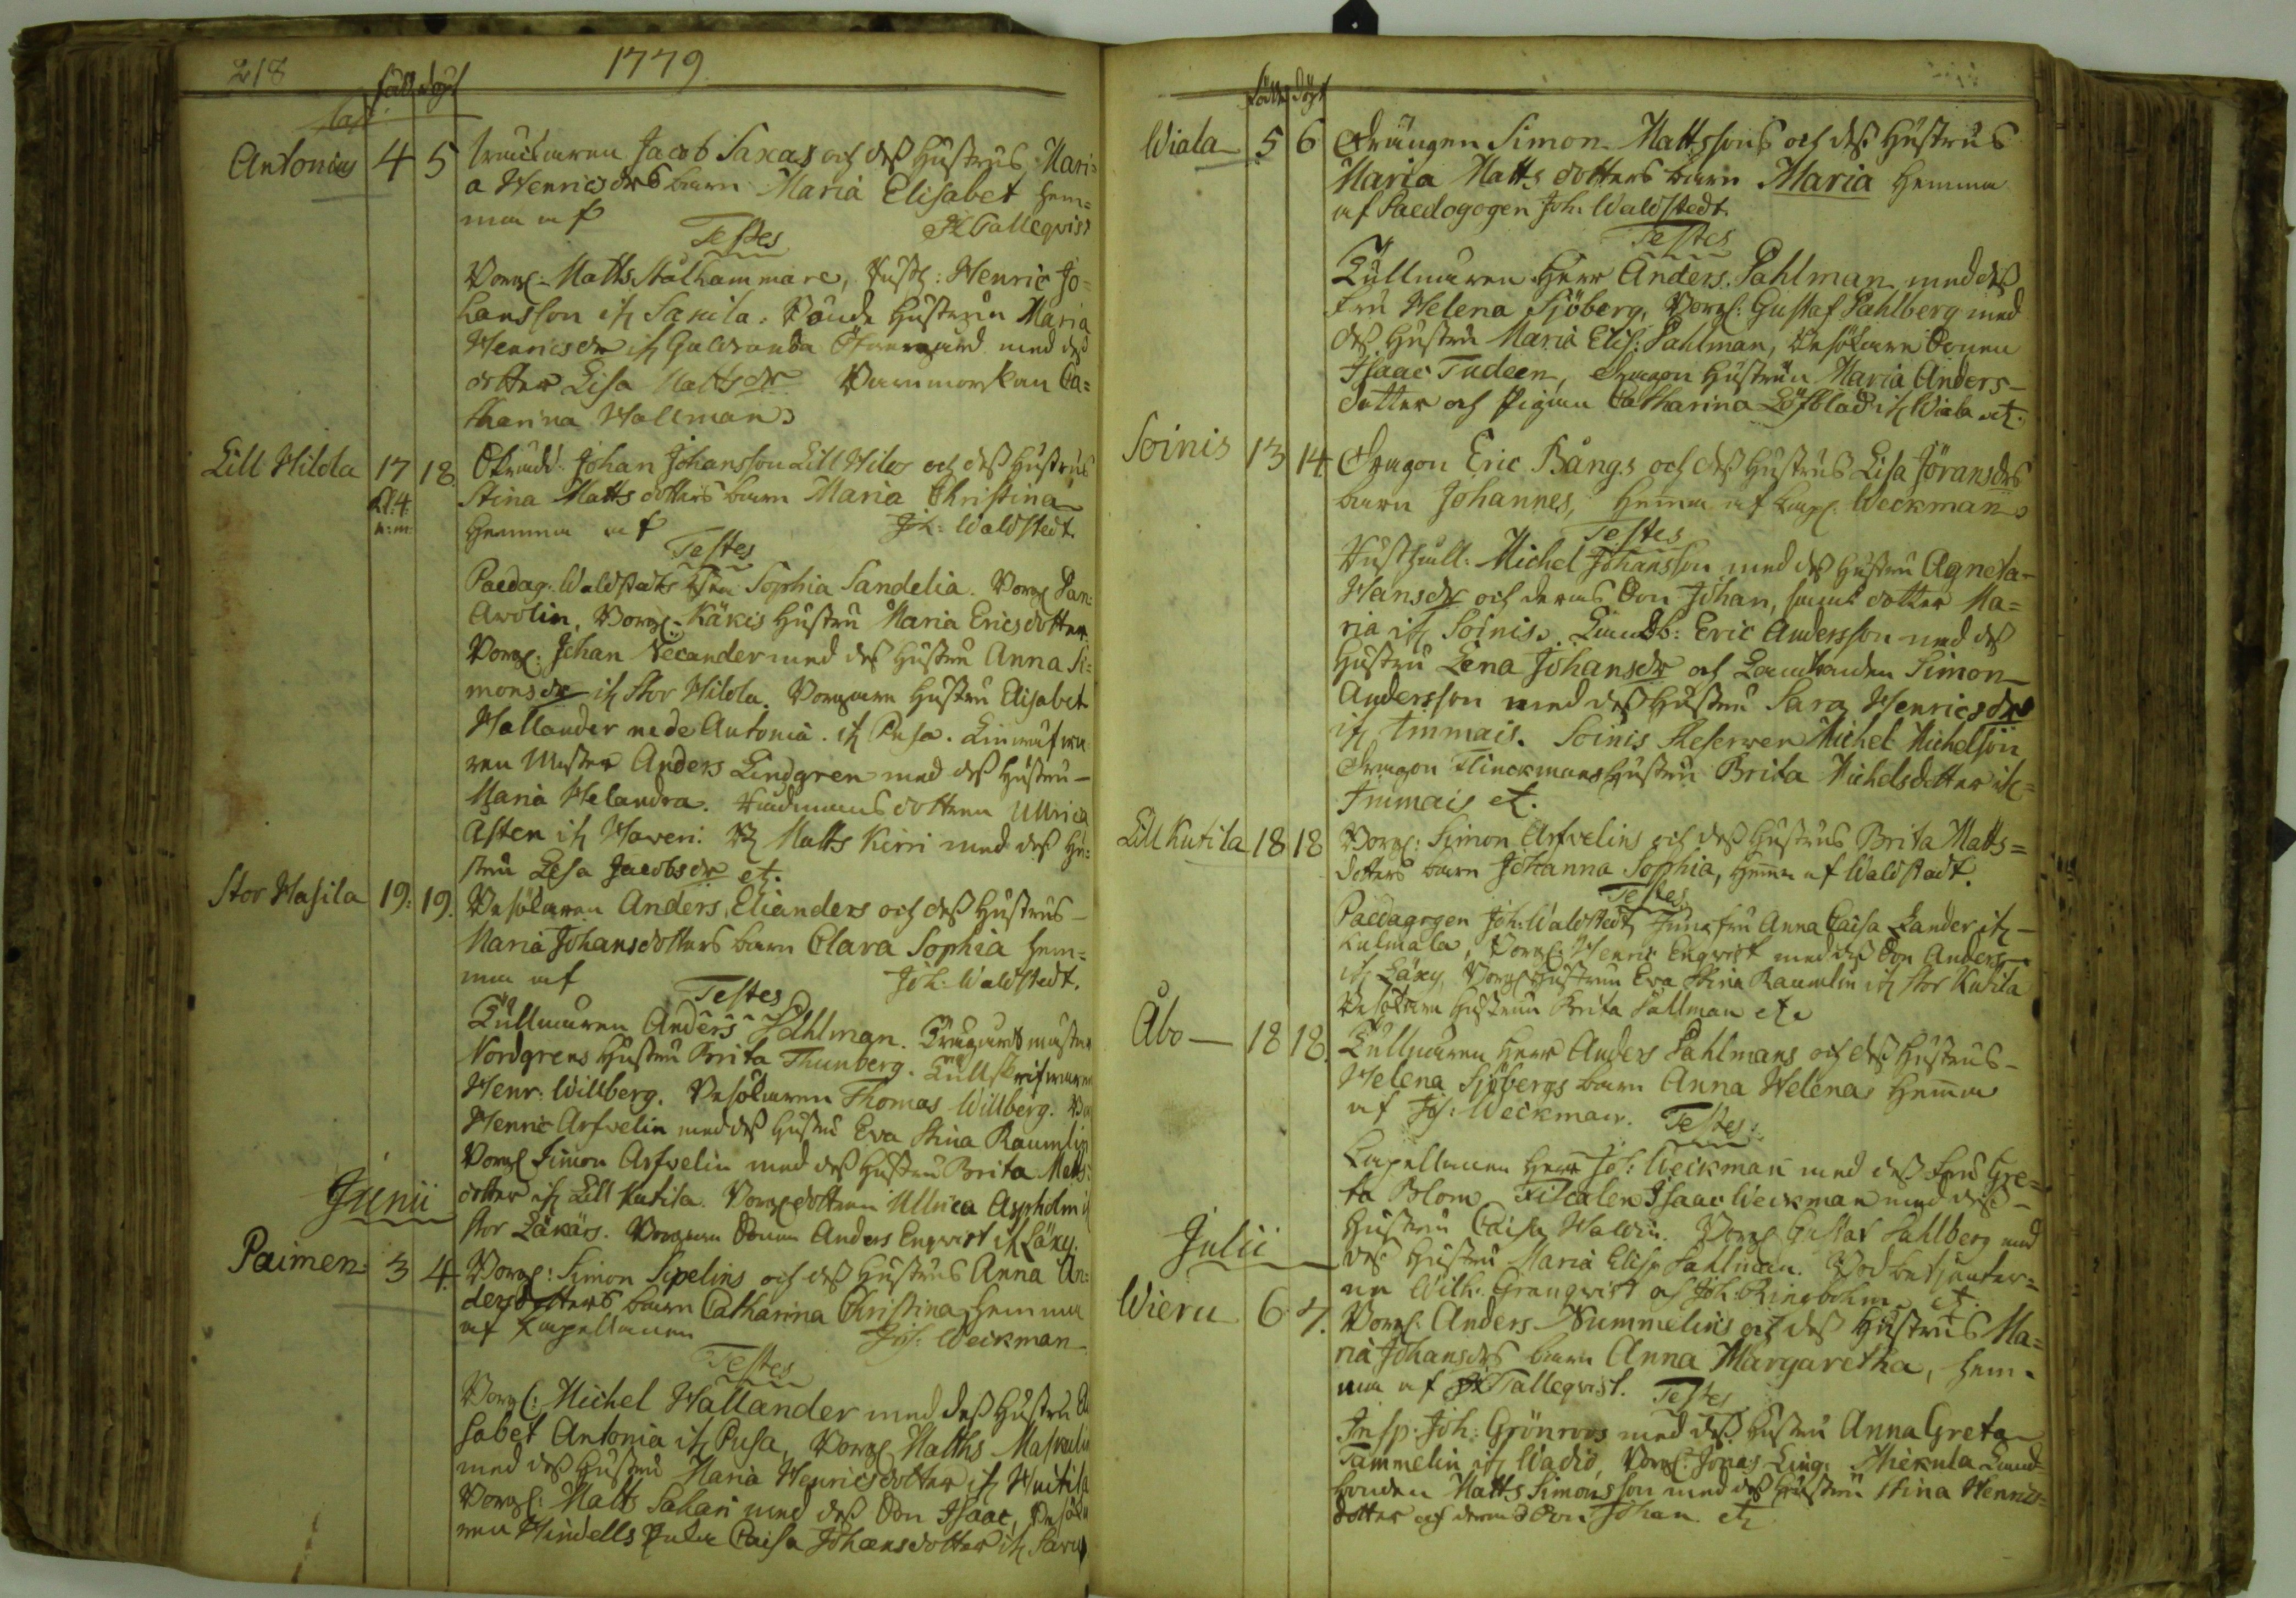 218
1779
född döpt
Antonius 4 5 Jacob Saxas och dess Hustrus Mari=
a Henricsdrs barn Maria Elisabet hem=
ma af
Testes Talleqvist
Borg: Matts Stålhammare, Henric Jo=
hansson Sanila. Hustrun Maria
Henricsdr med dess
dotter Lisa Mattsdr Barnmorskan Ca=
tharina Hallman
Lill Hilola 17 18 Johan Johansson Lill Hilo och dess Hustrus
Kl: 4. Stina Matts dotters barn Maria Christina
e:m: hemma af Joh: Waldstedt.
Testes
Paedag: Waldstedts Sophia Sandelia. Borg Dan:
Avolin, Borg: Käkis Hustru Maria Ericsdotter
Borg: Johan Necander med dess Hustru Anna Si=
monsdr if Stor Hilola. Borgaren Hustru Elisabet
Hallander Antonia if Pusa.
Anders Lindgren med dess Hustru
Maria Helandra. dottren Ullrica
Asten if Haveri. Matts Kirri med dess Hu=
stru Lisa Jacobsdr etc.
Stor Hasila 19. 19. Besökaren Anders Elianders och dess Hustrus
Maria Johansdotters barn Clara Sophia hem=
ma af Joh: Waldstedt.
Testes
Tullnären Anders Påhlman.
Nordgrens Hustru Brita Thunberg. Tullskrifwaren
Henr: Willberg. Besökaren Thomas Willberg.
Henric Arfvelin med dess Hustru Eva Stina Raumlin
Borg Simon Arfvelin med dess Hustru Brita Matts:
dotter if Lill Kutila. Borg dottren Ullrica
Stor Läkärs. Borgaren Sonen Anders Enqvist if Läxy.
Junii
Paimen 3 4. Borg: Simon Sipelins och dess Hustrus Anna An:
dersdotters barn Catharina Christina hemma
af Kapellanen Joh: Weckman
Testes
Borg: Michel Hallander med dess Hustru Eli
sabet Antonia if Pusa, Borg Matths
med dess Hustru Maria Henricsdotter if
Borg: Matts Sahari med dess Son Isaac,
Caisa Johansdotter if
född döpt
Wiala 5 6 Drängen Simon Mattssons och dess Hustrus
Maria Matts dotters barn Maria hemma
af Paedogogen Joh: Waldstedt.
Testes
Tullnären Herr Anders Påhlman med dess
Fru Helena Sjöberg, Borg: Gustaf Pahlberg med
dess Hustru Maria Elis: Påhlman, Besökare Sonen
Isaac Tudeen, Dragon Hustrun Maria Anders
dotter och Pigan Catharina Löfblad if Wiala etc.
Soinis 13 14 Dragon Eric Bångs och dess Hustrus Lisa Jöransdrs
barn Johannes, hemma af Weckman
Testes
Michel Johansson med dess Hustru Agneta
Hansdr och deras Son Johan, samt dotter Ma=
ria if Soinis. Landb: Eric Andersson med dess
Hustru Lena Johansdr och Landbonden Simon
Andersson med dess Hustru Sara Henricsdr
if Immais. Soinis Reserven Michel Michelson
Dragon Flinckmans Hustru Brita Michelsdotter if
Immais etc.
Lill Kutila 18 18 Borg: Simon Arfvelins och dess Hustrus Brita Matts=
dotters barn Johanna Sophia, hemma af Waldstedt.
Testes
Paedagogen Joh: Waldstedt, Jungfru Anna Caisa Zander if
Kulmala, Borg: Henric Enqvist med dess Son Anders
if Läxy, Borg Hustrun Eva Stina Raumlin if Stor Kutila
Besökare Hustrun Brita Påhlman etc
Åbo 18 18. Tullnären Herr Anders Påhlmans och dess Hustrus
Helena Sjöbergs barn Anna Helena hemma
af Joh: Weckman. Testes.
Kapellanen Herr Joh: Weckman med dess Fru Gre=
ta Blom Fiscalen Isaac Weckman med dess
Hustru Caisa Borg Gustaf Pahlberg med
dess Hustru Maria Elis Påhlman.
Wilh: Granqvist och Joh: Ringbohm etc.
Julii
Wieru 6 7. Borg: Anders Nummelins och dess Hustrus Ma=
ria Johansdrs barn Anna Margaretha, hem=
ma af Tallequist. Testes
Insp: Joh: Grönroos med dess Hustru Anna Greta
Tammelin if Wadio, Borg: Jonas Ling: Mickula Land=
bonden Matts Simonsson med dess Hustru Stina Henrics=
dotter och deras Son Johan etc